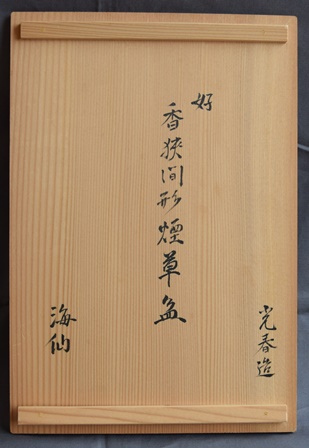 好
香狭間形煙草盆
光春造
海仙